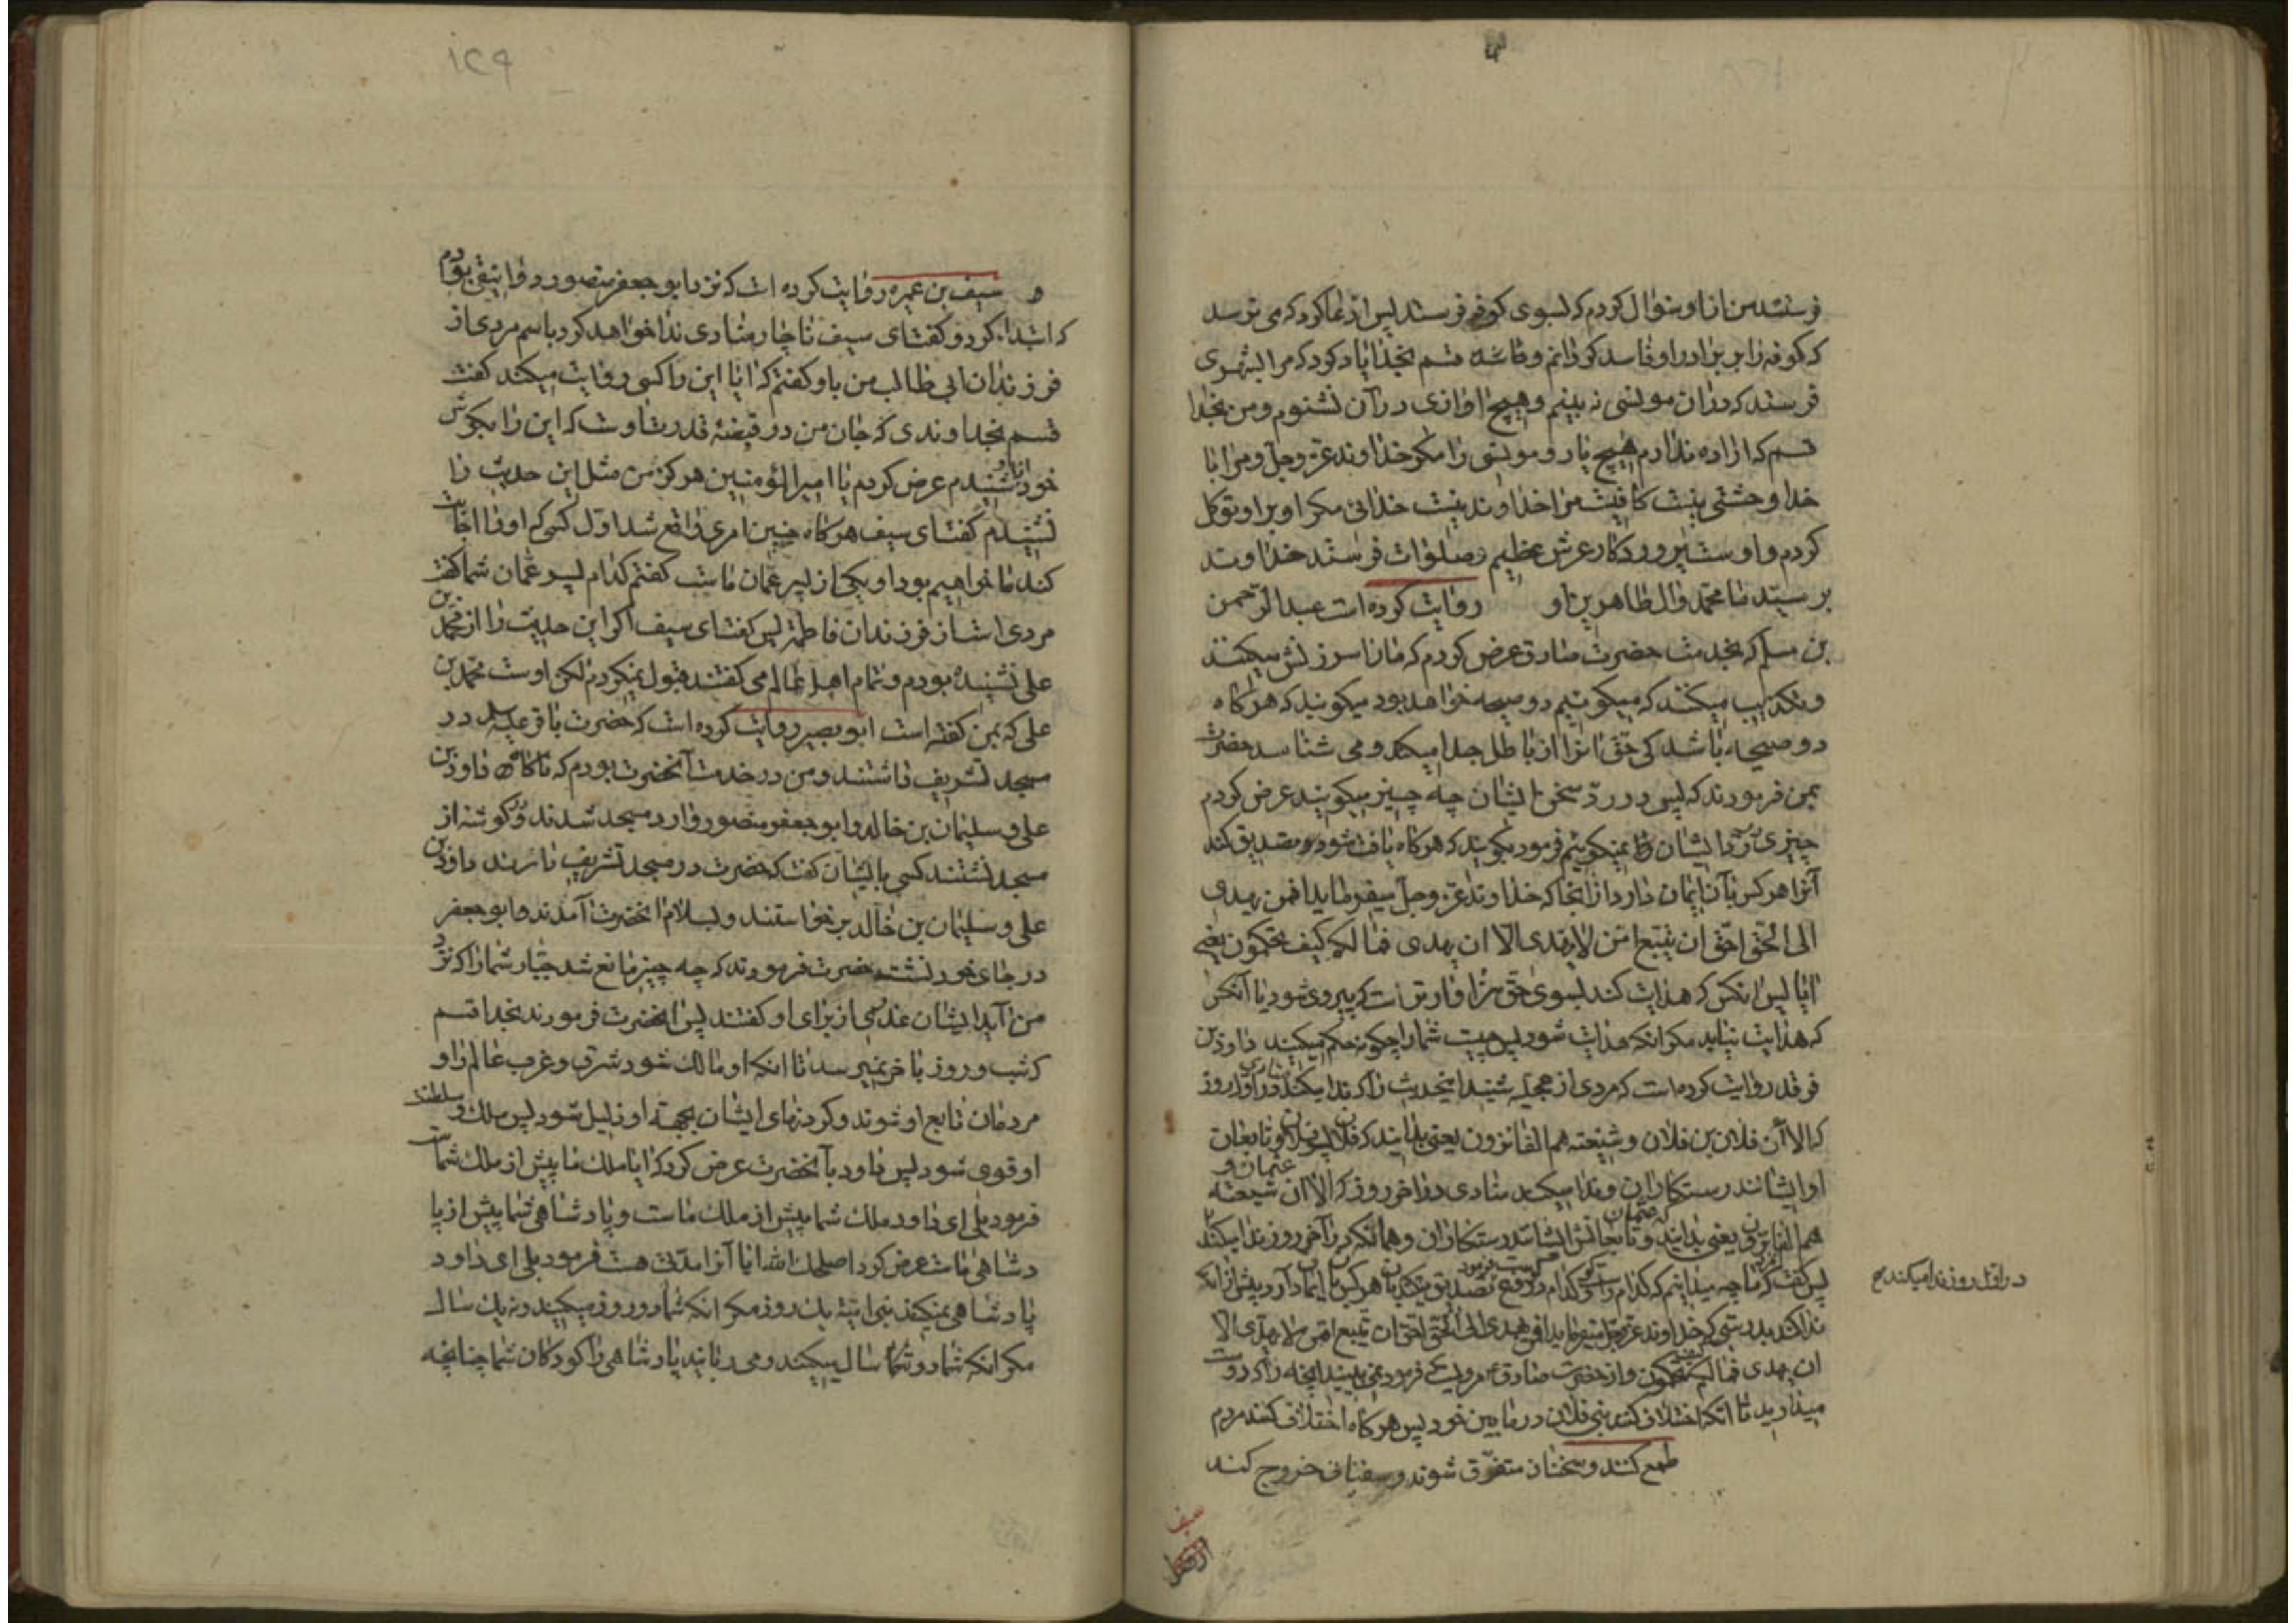 فرستند من از او سؤال کردم که بسوی کوفه فرستد پس از ندا کرد که می ترسد
که کوفه را بر برادر او فاسد کردانم و قسم بخدا یاد کرد که مرا بشهری
فرستد که در ان مونسی نه بینم و هیچ اوازی در آن نشنوم و من بخدا
قسم که اراده ندارم هیچ یار و مونسی را مکر خداوند عز و جل و مرا با
خدا وحشتی نیست کافیست مرا خداوند نیست خدائی مکر او بر او توکل
کردم و اوست پروردکار عرش عظیم و صلوات فرستد خداوند
بر سیّد ما محمّد و ال طاهرین او روایت کرده است عبدالرّحمن
بن مسلم که بخدمت حضرت صادق عرض کردم که ما را سرزنش میکنند
و تکذیب میکنند که میکوئیم دو صیحه خواهد بود میکویند که هرکاه
دو صیحه باشد کی حق انرا از باطل جدا میکند و می شناسد حضرت
بمن فرمودند که پس در ردّ سخن ایشان چه چیز میکویند عرض کردم
چیزی در رد ایشان نمیکوئیم فرمود بکویند که هرکاه یافت شود تصدیق کند
آنرا هرکس بآن ایمان دارد از انجا که خداوند عز و جل میفرماید افمن یهدی
الی الحق احق ان یتبع امّن لا یهدی الّا ان یهدی فما لکم کیف تحکمون یعنی
ایا پس انکس که هدایت کند بسوی حق سزاوارتر است که پیروی شود یا آنکس
که هدایت نیابد مکر انکه هدایت شود پس چیست شما را چکونه حکم میکنید داود بن
فرقد روایت کرده است که مردی از عجلیه شنید اینحدیث را که ندا میکند منادی در اول روز
که الا ان فلان بن فلان و شیعته هم الفائزون یعنی بدانید که فلان بن فلان و تابعان
او ایشانند رستکاران و ندا میکند منادی در اخر روز که الا ان عثمان و شیعته
هم الفائزون یعنی بدانید که عثمان و تابعانش ایشانند رستکاران و همانکه در آخر روز ندا میکند
در اوّل روز ندا میکند
پس گفت که ما چه میدانیم که کدام راست کو و کدام دروغ
ندا کند بدرستی که خداوند عز و جل میفرماید افمن یهدی الی الحق احق ان یتبع امّن لا یهدّی الّا
ان یهدی فما لکم کیف تحکمون و از حضرت صادق مرویست که فرمود نمی بینید انچه را که دوست
میدارید تا انکه اختلاف کنند بنی فلان در مابین خود پس هرکاه اختلاف کنند مردم
طمع کنند و سخنان متفرق شوند و سفیانی خروج کند
سیف
۱۲۹
سیف بن عمیره روایت کرده است که نزد ابو جعفر منصور دوانیقی بودم
که ابتدا کرد و گفت ای سیف ناچار منادی ندا خواهد کرد باسم مردی از
فرزندان ابی طالب من باو گفتم که ایا این را کسی روایت میکند گفت
قسم بخداوندی که جان من در قبضه قدرت اوست که این را بکوش
خود شنیدم عرض کردم یا امیر المؤمنین هرکز من مثل این حدیث را
نشنیدم گفت ای سیف هرکاه چنین امری واقع شد اوّل کسی که او را اجابت
کند ما خواهیم بود او یکی از پسر عمّان ماست گفتم کدام پسر عمّان شما گفت
مردی است از فرزندان فاطمه پس گفت ای سیف اکر این حدیث را از محمّد بن
علی نشنیده بودم و تمام اهل عالم می گفتند قبول نمیکردم لکن اوست محمّد بن
علی که بمن گفته است ابو بصیر روایت کرده است که حضرت باقر علیه السلام در
مسجد تشریف داشتند و من در خدمت آنحضرت بودم که ناکاه داود بن
علی و سلیمان بن خالد و ابو جعفر منصور وارد مسجد شدند و در کوشه از
مسجد نشستند کسی بایشان گفت که حضرت در مسجد تشریف دارند داود بن
علی و سلیمان بن خالد برخواستند و بسلام انحضرت آمدند و ابو جعفر
در جای خود نشست حضرت فرمودند که چه چیز مانع شد جبّار شما را که نزد
من آید ایشان عذری از برای او گفتند پس انحضرت فرمودند بخدا قسم
که شب و روز باخر نمیرسد تا انکه او مالک شود شرق و غرب عالم را و
مردمان تابع او شوند و کردنهای ایشان بجهته او ذلیل شود پس ملک و سلطنت
او قوی شود پس داود بآنحضرت عرض کرد که ایا ملک ما پیش از ملک شماست
فرمود بلی ای داود ملک شما پیش از ملک ماست و پادشاهی شما پیش از پا
دشاهی ماست عرض کرد اصلحک الله ایا آنرا مدّتی هست فرمود بلی ای داود
پادشاهی نمیکند بنی امیّه یک روز مکر انکه شما دو روز میکنید و نه یک سال
مکر انکه شما دو سال میکنید و می ربایند پادشاهی را کودکان شما چنانچه